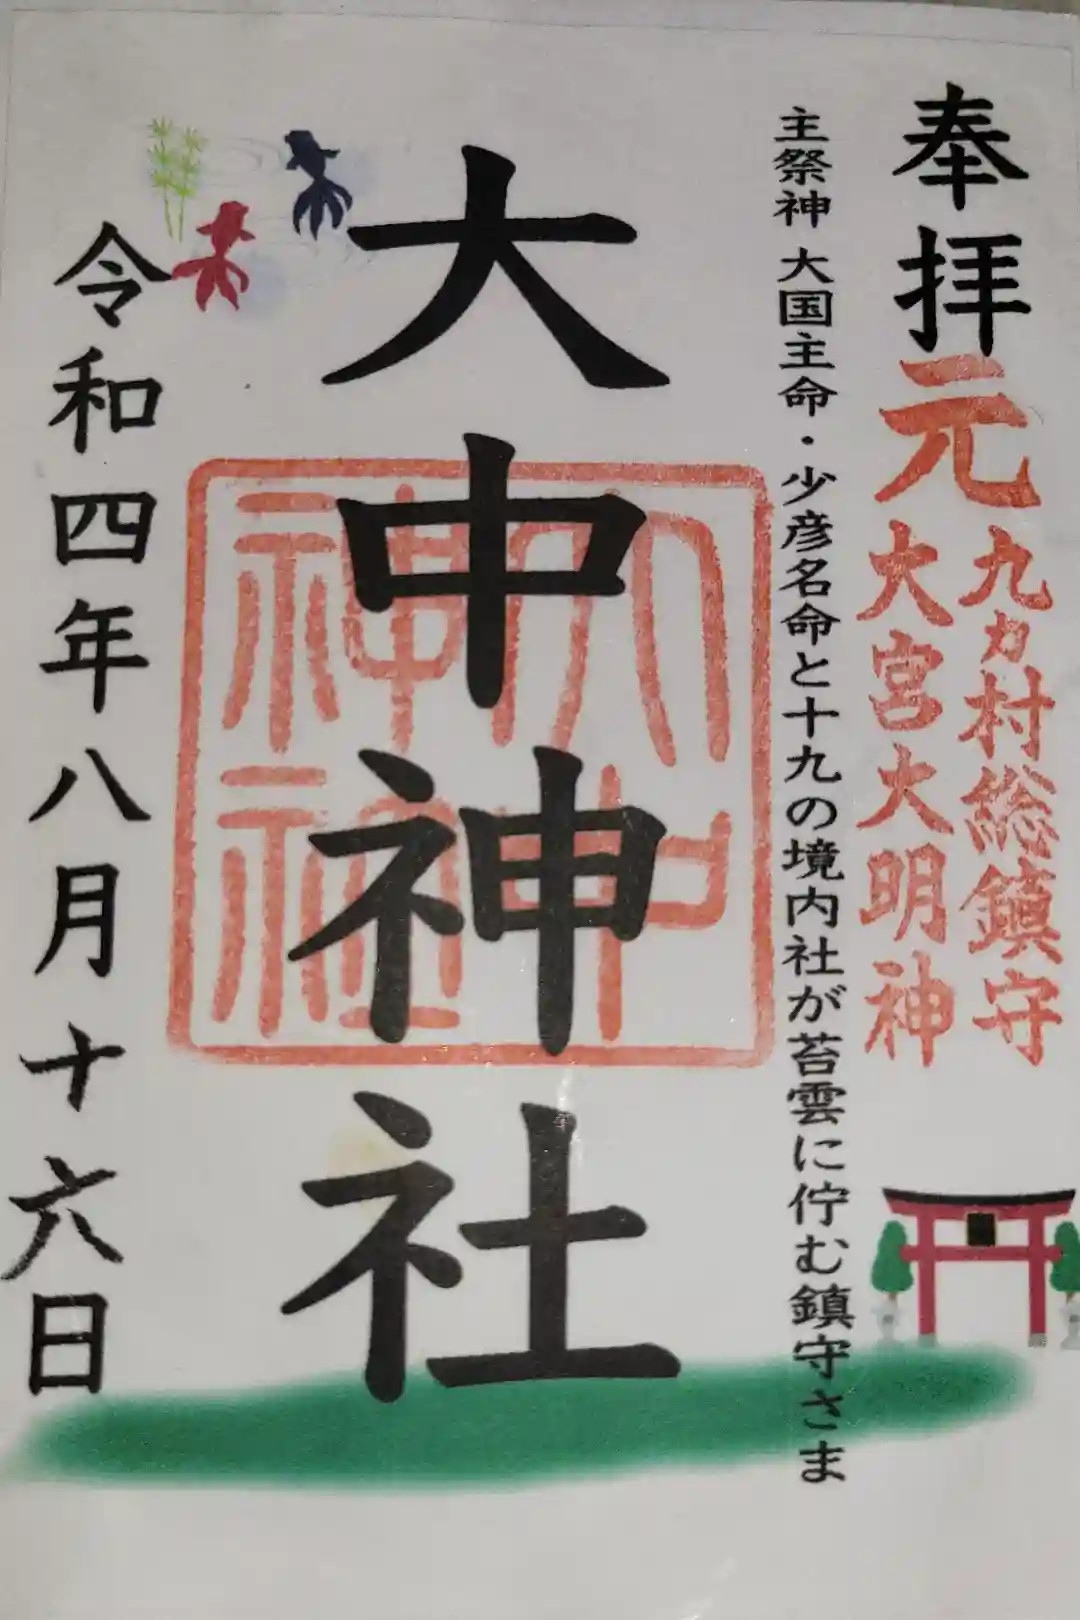 奉拝
元
九カ村総鎮守
大宮大明神
主祭神 大国主命・少彦名命と十九の境内社が苔雲に佇む鎮守さま
大中神社
大中
神社
令和四年八月十六日